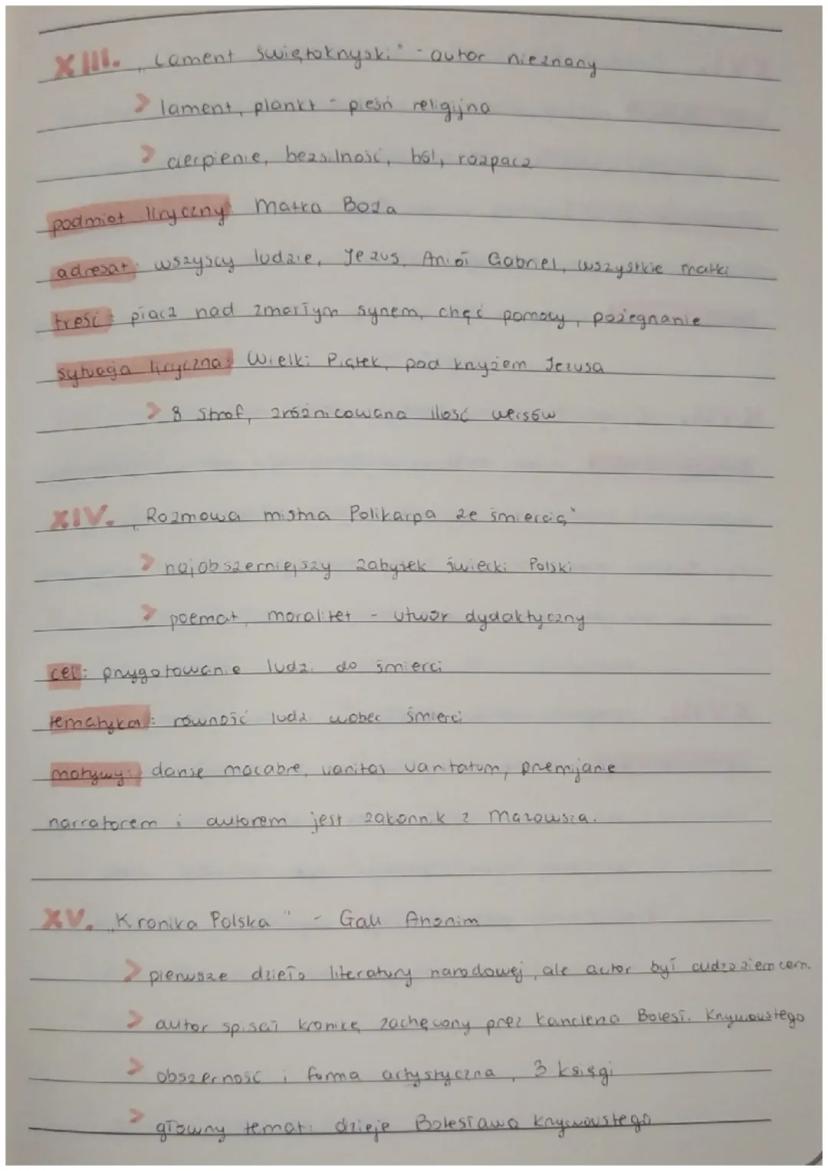 XIII. „Lament świętokrzyski" - autor nieznany
> lament, plankt - pieśń religijna
> cierpienie, bezsilność, ból, rozpacz
podmiot liryczny: Matka Boża
adresat: wszyscy ludzie, Jezus, Anioł Gabriel, wszystkie matki
treść: płacz nad zmarłym synem, chęć pomocy, pożegnanie
sytuacja liryczna: Wielki Piątek, pod krzyżem Jezusa
> 8 strof, zróżnicowana ilość wersów
XIV. „Rozmowa mistrza Polikarpa ze śmiercią"
> najobszerniejszy zabytek świecki Polski
> poemat, moralitet - utwór dydaktyczny
cel: przygotowanie ludzi do śmierci
tematyka: równość ludzi wobec śmierci
motywy: danse macabre, vanitas vanitatum, przemijanie
narratorem i autorem jest zakonnik z Mazowsza.
XV. „Kronika Polska" - Gall Anonim
> pierwsze dzieło literatury narodowej, ale autor był cudzoziemcem.
> autor spisał kronikę zachęcony przez kanclerza Bolesł. Krzywoustego
> obszerność i forma artystyczna, 3 księgi
> główny temat: dzieje Bolesława Krzywoustego